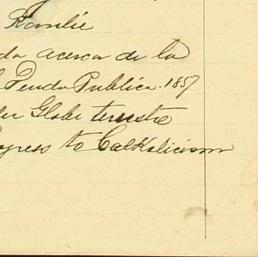 Ramlie
da acerca de la
Deuda Publica. 1857
Globe terrestre
ogress to Catholicism